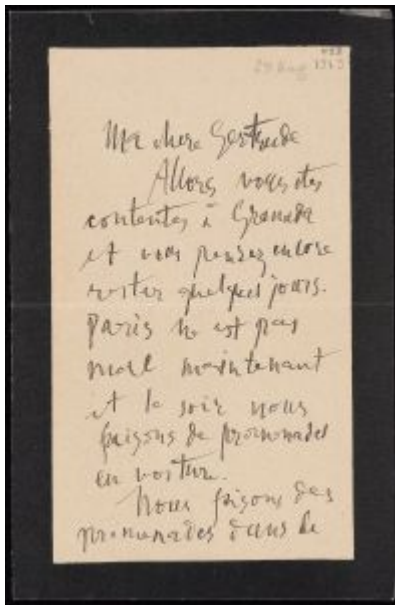 29 Aug 1913
Ma chere Gertrude
Allors vous etes
contentes à Granada
et vous pensez encore
rester quelques jours.
Paris n est pas
mal maintenant
et le soir nous
faisons de promenades
en voiture.
Nous faisons des
promenades dans le